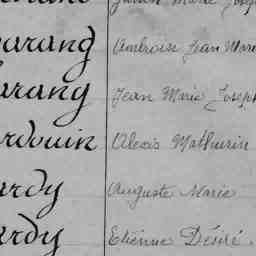 Marie Joseph
arang Ambroise Jean Marie
arang Jean Marie Joseph
rdouin Alexis Mathurin
ardy Auguste Marie
ardy Etienne Désiré.